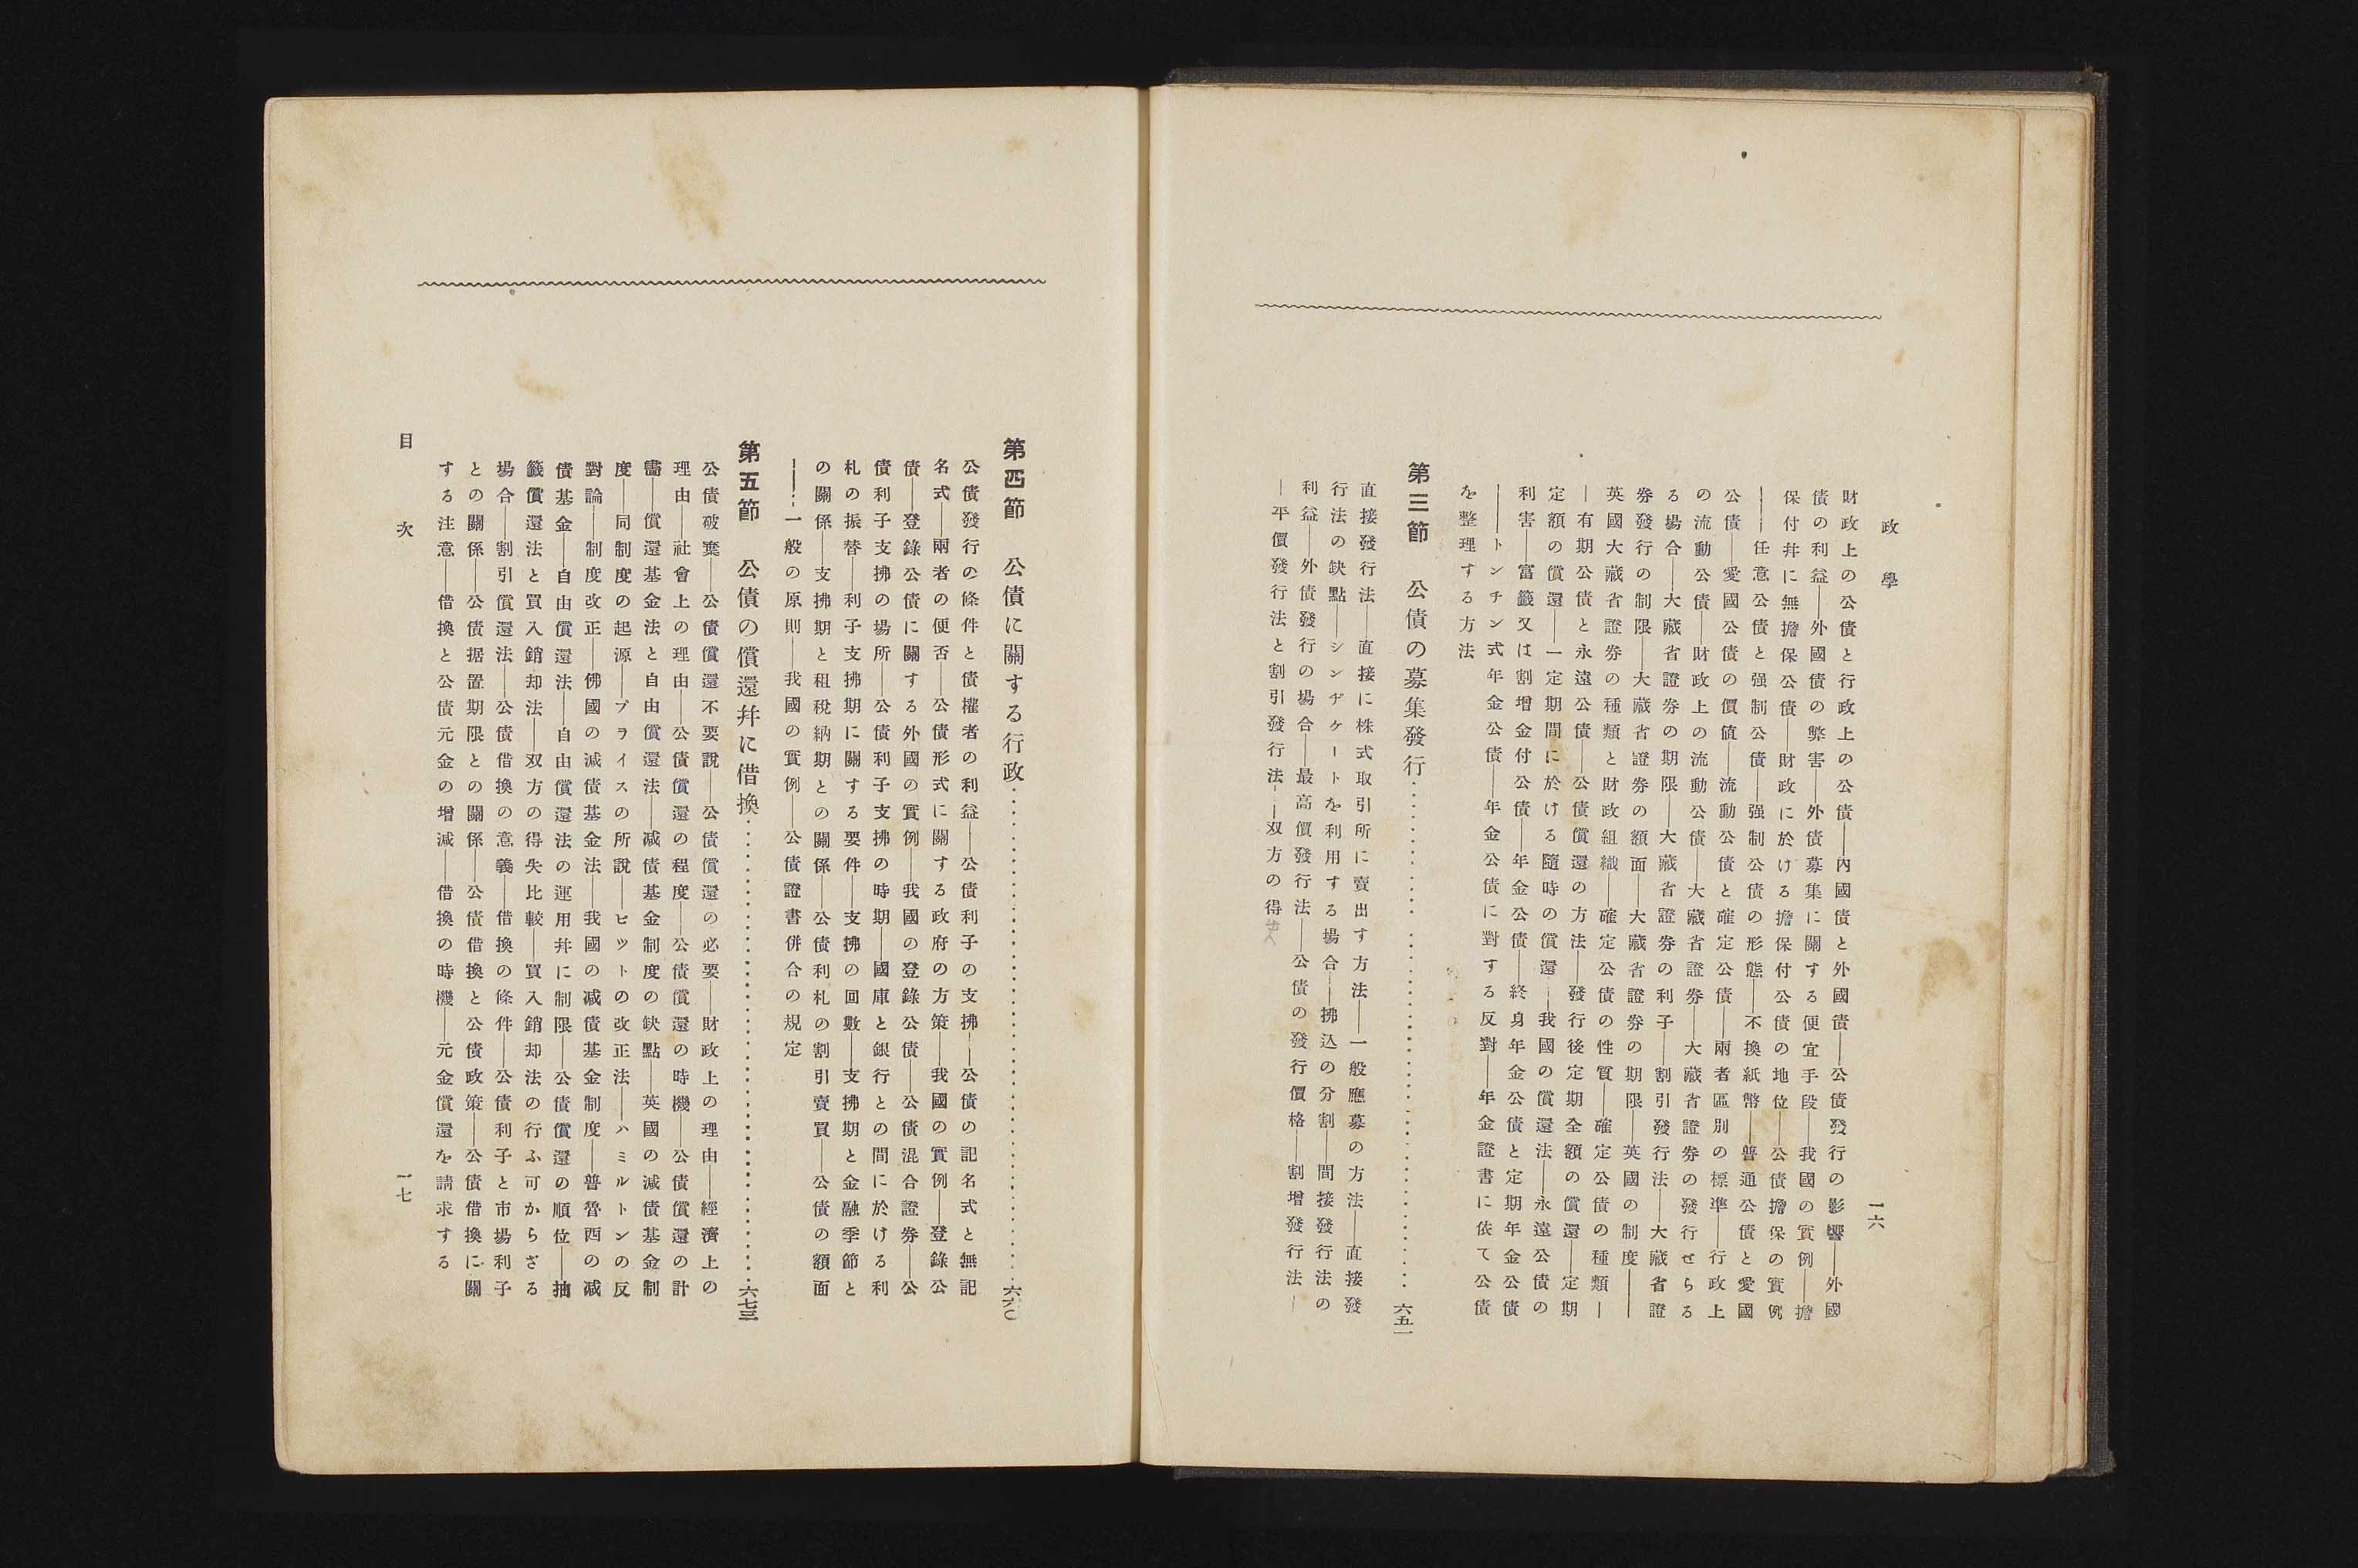 政學
一六
財政上の公債と行政上の公債――內國債と外國債――公債發行の影響――外國
債の利益――外國債の弊害――外債募集に關する便宜手段――我國の實例――擔
保付幷に無擔保公債――財政に於ける擔保付公債の地位――公債擔保の實例
――任意公債と强制公債――强制公債の形態――不換紙幣――普通公債と愛國
公債――愛國公債の價値――流動公債と確定公債――兩者區別の標準――行政上
の流動公債――財政上の流動公債――大藏省證券――大藏省證券の發行せらる
る場合――大藏省證券の期限――大藏省證券の利子――割引發行法――大藏省證
券發行の制限――大藏省證券の額面――大藏省證券の期限――英國の制度――
英國大藏省證券の種類と財政組織――確定公債の性質――確定公債の種類―
―有期公債と永遠公債――公債償還の方法――發行後定期全額の償還――定期
定額の償還――一定期間に於ける隨時の償還――我國の償還法――永遠公債の
利害――富籤又は割增金付公債――年金公債――終身年金公債と定期年金公債
――トンチン式年金公債――年金公債に對する反對――年金證書に依て公債
を整理する方法
第三節　公債の募集發行……………………六五一
直接發行法――直接に株式取引所に賣出す方法――一般應募の方法――直接發
行法の缺點――シンヂケートを利用する場合――拂込の分割――間接發行法の
利益――外債發行の場合――最高價發行法――公債の發行價格――割增發行法―
―平價發行法と割引發行法――双方の得失
第四節　公債に關する行政……………………六六〇
公債發行の條件と債權者の利益――公債利子の支拂――公債の記名式と無記
名式――兩者の便否――公債形式に關する政府の方策――我國の實例――登錄公
債――登錄公債に關する外國の實例――我國の登錄公債――公債混合證券――公
債利子支拂の場所――公債利子支拂の時期――國庫と銀行との間に於ける利
札の振替――利子支拂期に關する要件――支拂の回數――支拂期と金融季節と
の關係――支拂期と租稅納期との關係――公債利札の割引賣買――公債の額面
――一般の原則――我國の實例――公債證書併合の規定
第五節　公債の償還幷に借換……………………六七三
公債破棄――公債償還不要說――公債償還の必要――財政上の理由――經濟上の
理由――社會上の理由――公債償還の程度――公債償還の時機――公債償還の計
畵――償還基金法と自由償還法――减債基金制度の缺點――英國の减債基金制
度――同制度の起源――プライスの所說――ピットの改正法――ハミルトンの反
對論――制度改正――佛國の减債基金法――我國の减債基金制度――普魯西の减
債基金――自由償還法――自由償還法の運用幷に制限――公債償還の順位――抽
籤償還法と買入銷却法――双方の得失比較――買入銷却法の行ふ可からざる
場合――割引償還法――公債借換の意義――借換の條件――公債利子と市場利子
との關係――公債据置期限との關係――公債借換と公債政策――公債借換に關
する注意――借換と公債元金の增减――借換の時機――元金償還を請求する
目次
一七